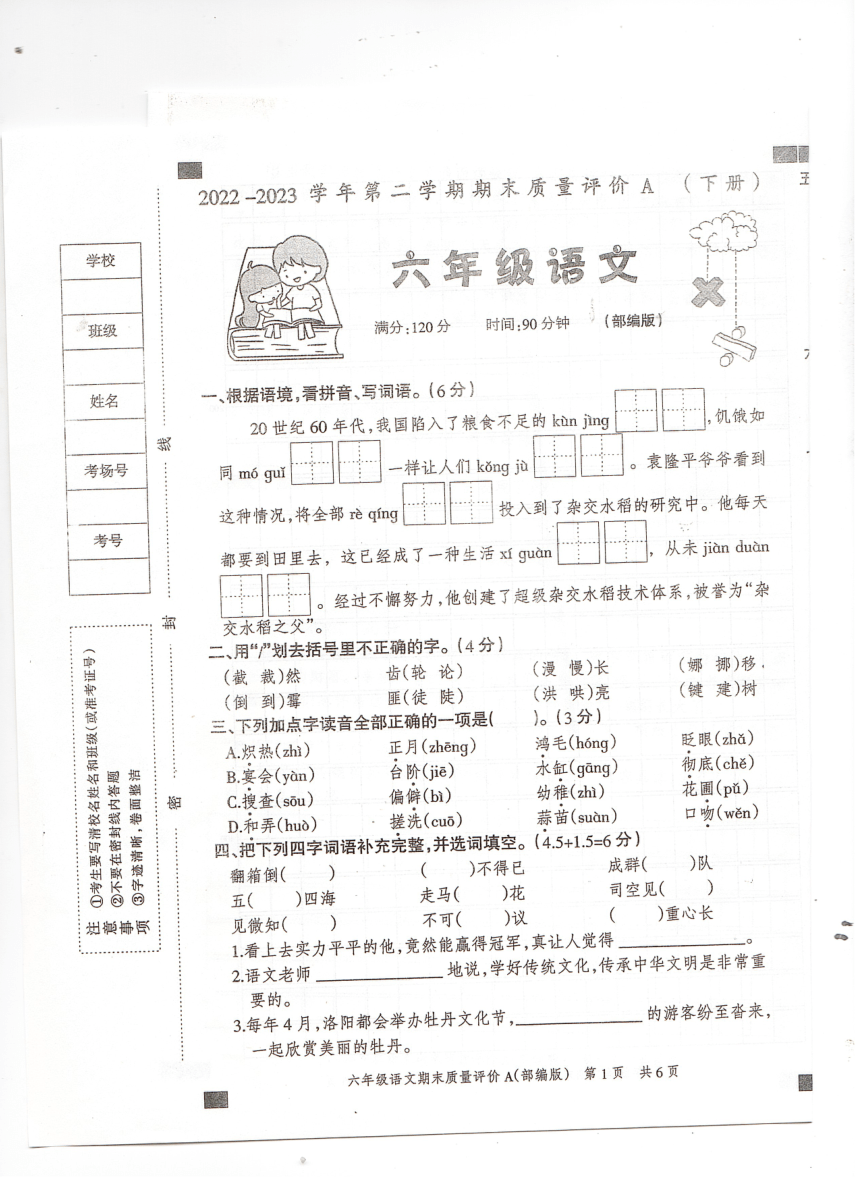 2022-2023 学年第二学期期末质量评价 A （下册）
六年级语文
满分:120分 时间:90分钟 (部编版)
学校
班级
姓名
考场号
考号
线
封
密
注意事项
①考生要写清校名姓名和班级(或准考证号)
②不要在密封线内答题
③字迹清晰,卷面整洁
一、根据语境,看拼音、写词语。(6分)
20世纪60年代,我国陷入了粮食不足的 kùn jìng ,饥饿如
同 mó guǐ 一样让人们 kǒng jù 。袁隆平爷爷看到
这种情况,将全部 rè qíng 投入到了杂交水稻的研究中。他每天
都要到田里去，这已经成了一种生活 xí guàn ，从未 jiàn duàn
。经过不懈努力,他创建了超级杂交水稻技术体系,被誉为“杂
交水稻之父”。
二、用“/”划去括号里不正确的字。(4分)
(截 裁)然 齿(轮 论) (漫 慢)长 (娜 挪)移.
(倒 到)霉 匪(徒 陡) (洪 哄)亮 (键 建)树
三、下列加点字读音全部正确的一项是( )。(3分)
A.炽热(zhì) 正月(zhēng) 鸿毛(hóng) 眨眼(zhǎ)
B.宴会(yàn) 台阶(jiē) 水缸(gāng) 彻底(chě)
C.搜查(sōu) 偏僻(bì) 幼稚(zhì) 花圃(pǔ)
D.和弄(huò) 搓洗(cuō) 蒜苗(suàn) 口吻(wěn)
四、把下列四字词语补充完整,并选词填空。(4.5+1.5=6分)
翻箱倒( ) ( )不得已 成群( )队
五( )四海 走马( )花 司空见( )
见微知( ) 不可( )议 ( )重心长
1.看上去实力平平的他,竟然能赢得冠军,真让人觉得 ＿＿＿＿＿＿。
2.语文老师 ＿＿＿＿＿＿ 地说,学好传统文化,传承中华文明是非常重
要的。
3.每年4月,洛阳都会举办牡丹文化节,＿＿＿＿＿＿ 的游客纷至沓来,
一起欣赏美丽的牡丹。
六年级语文期末质量评价 A(部编版) 第1页 共6页